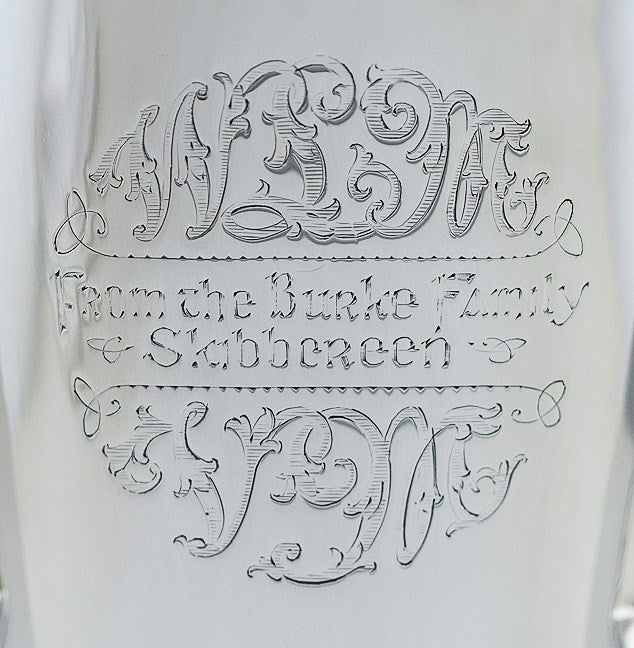 WLM
From the Burke Family
Skibbereen